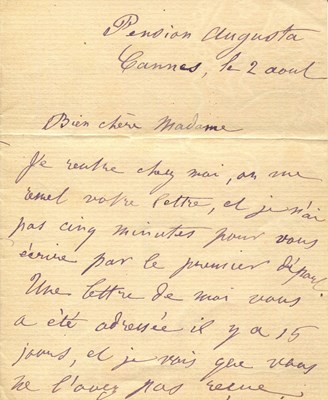 Pension Augusta
Cannes, le 2 aout
Bien chère Madame
Je rentre chez moi, on me
remet votre lettre, et je n'ai
pas cinq minutes pour vous
écrire par le premier départ
Une lettre de moi vous
a été adressée il y a 15
jours, et je vois que vous
ne l'avez pas reçue,